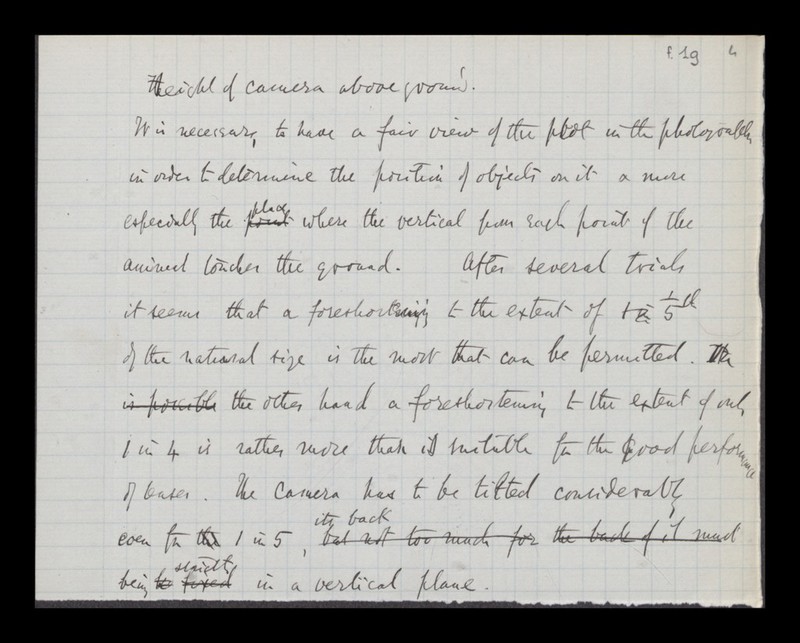 f. 19 4
Height of camera above ground.
It is necessary to have a fair view of the plot in the photographs
in order to determine the position of objects on it & more
especially the point place where the vertical from each point of the
animal touches the ground. After several trials
it seems that a foreshortening to the extent of 1/5th
of the natural size is the most that can be permitted.
is possible the other hand a foreshortening to the extent of only
1 in 4 is rather more than is suitable for the good performance
of lenses. The camera has to be tilted considerably
even for 1 in 5, but not too much for the back of it must its back
being fixed strictly in a vertical plane.